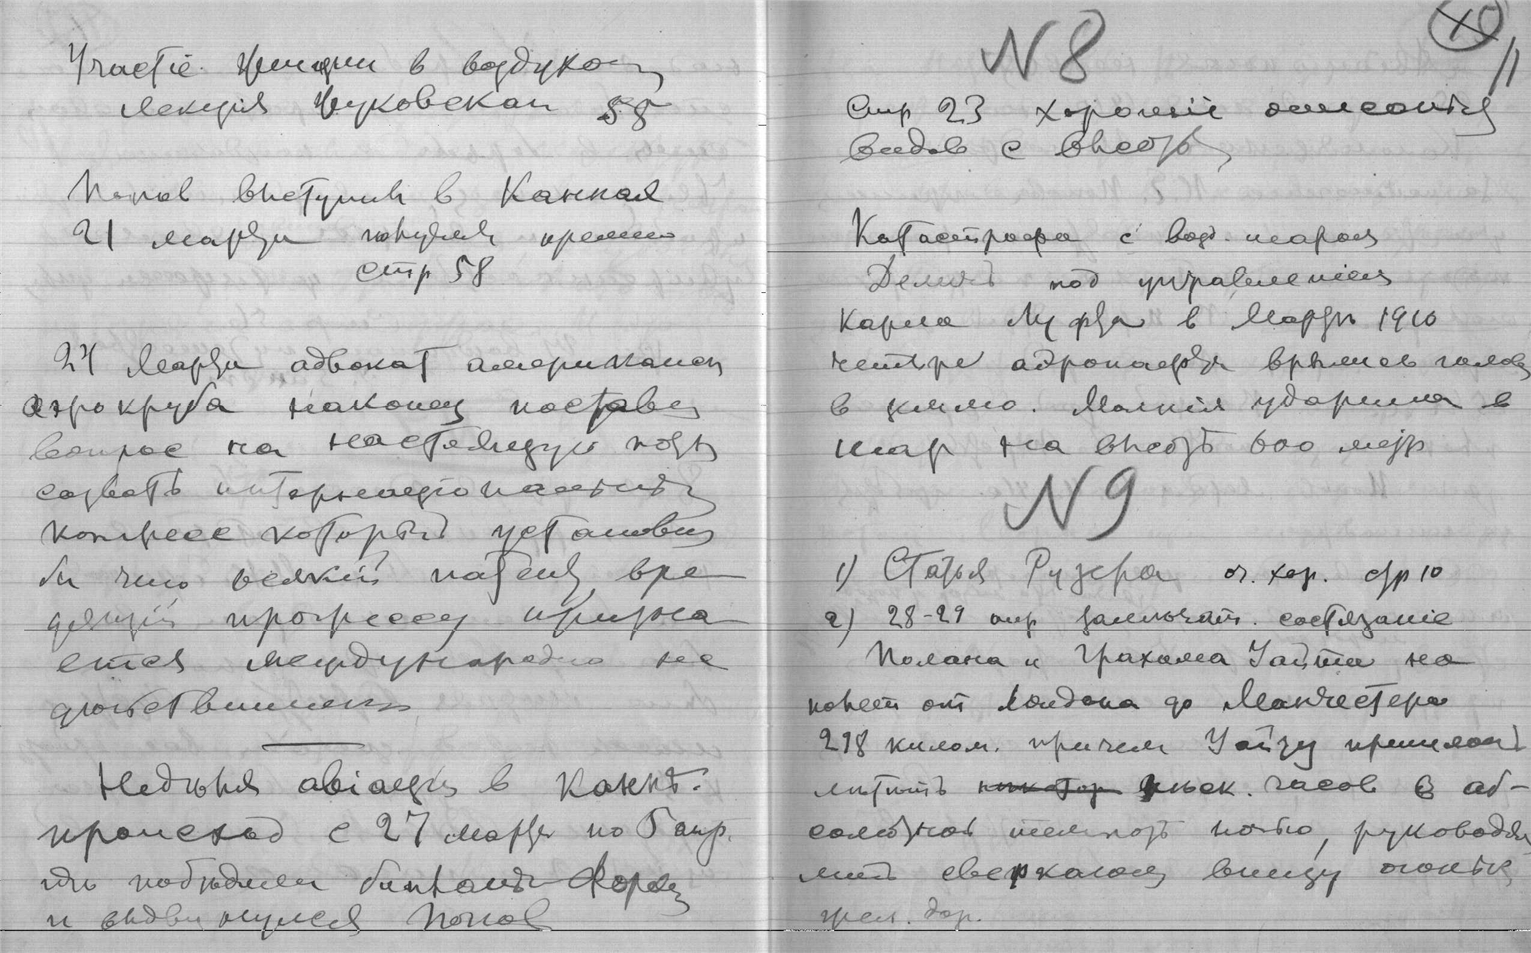 Участіе женщин в воздухо
лекция Жуковскаго 58
Попов выступил в Каннах
21 марта получил премію
стр 58
24 Марта адвокат американск
аэроклуба наконец поставил
вопрос на настоящую почву
созвать интернаціональный
конгресс который установил
бы что всякій патент, вре
дящій прогрессу призна
ется международно не
действительным
Недѣля авіаціи в Каннѣ.
происход с 27 марта по 5 апр.
гдѣ победил
и выдвинулся Попов
N 8
10
11
стр 23 хорошіе описанія
видов с высоты
Катастрофа с возд. шаром
под управленіем
Карла Луфта в Мартѣ 1910
четыре аэронавта врылись головой
в землю. Молнія ударила в
шар на высотѣ 600 метр
N 9
1) Статья Рузера оч. хор. стр 10
2) 28-29 апр замечат. состязаніе
Полана и Грахама Уайта на
полет от Лондона до Манчестера
298 килом. причем Уайту пришлось
летѣть нѣск. часов в аб-
солютной темнотѣ ночью, руководя
лишь сверкающ внизу огоньк
жел. дор.